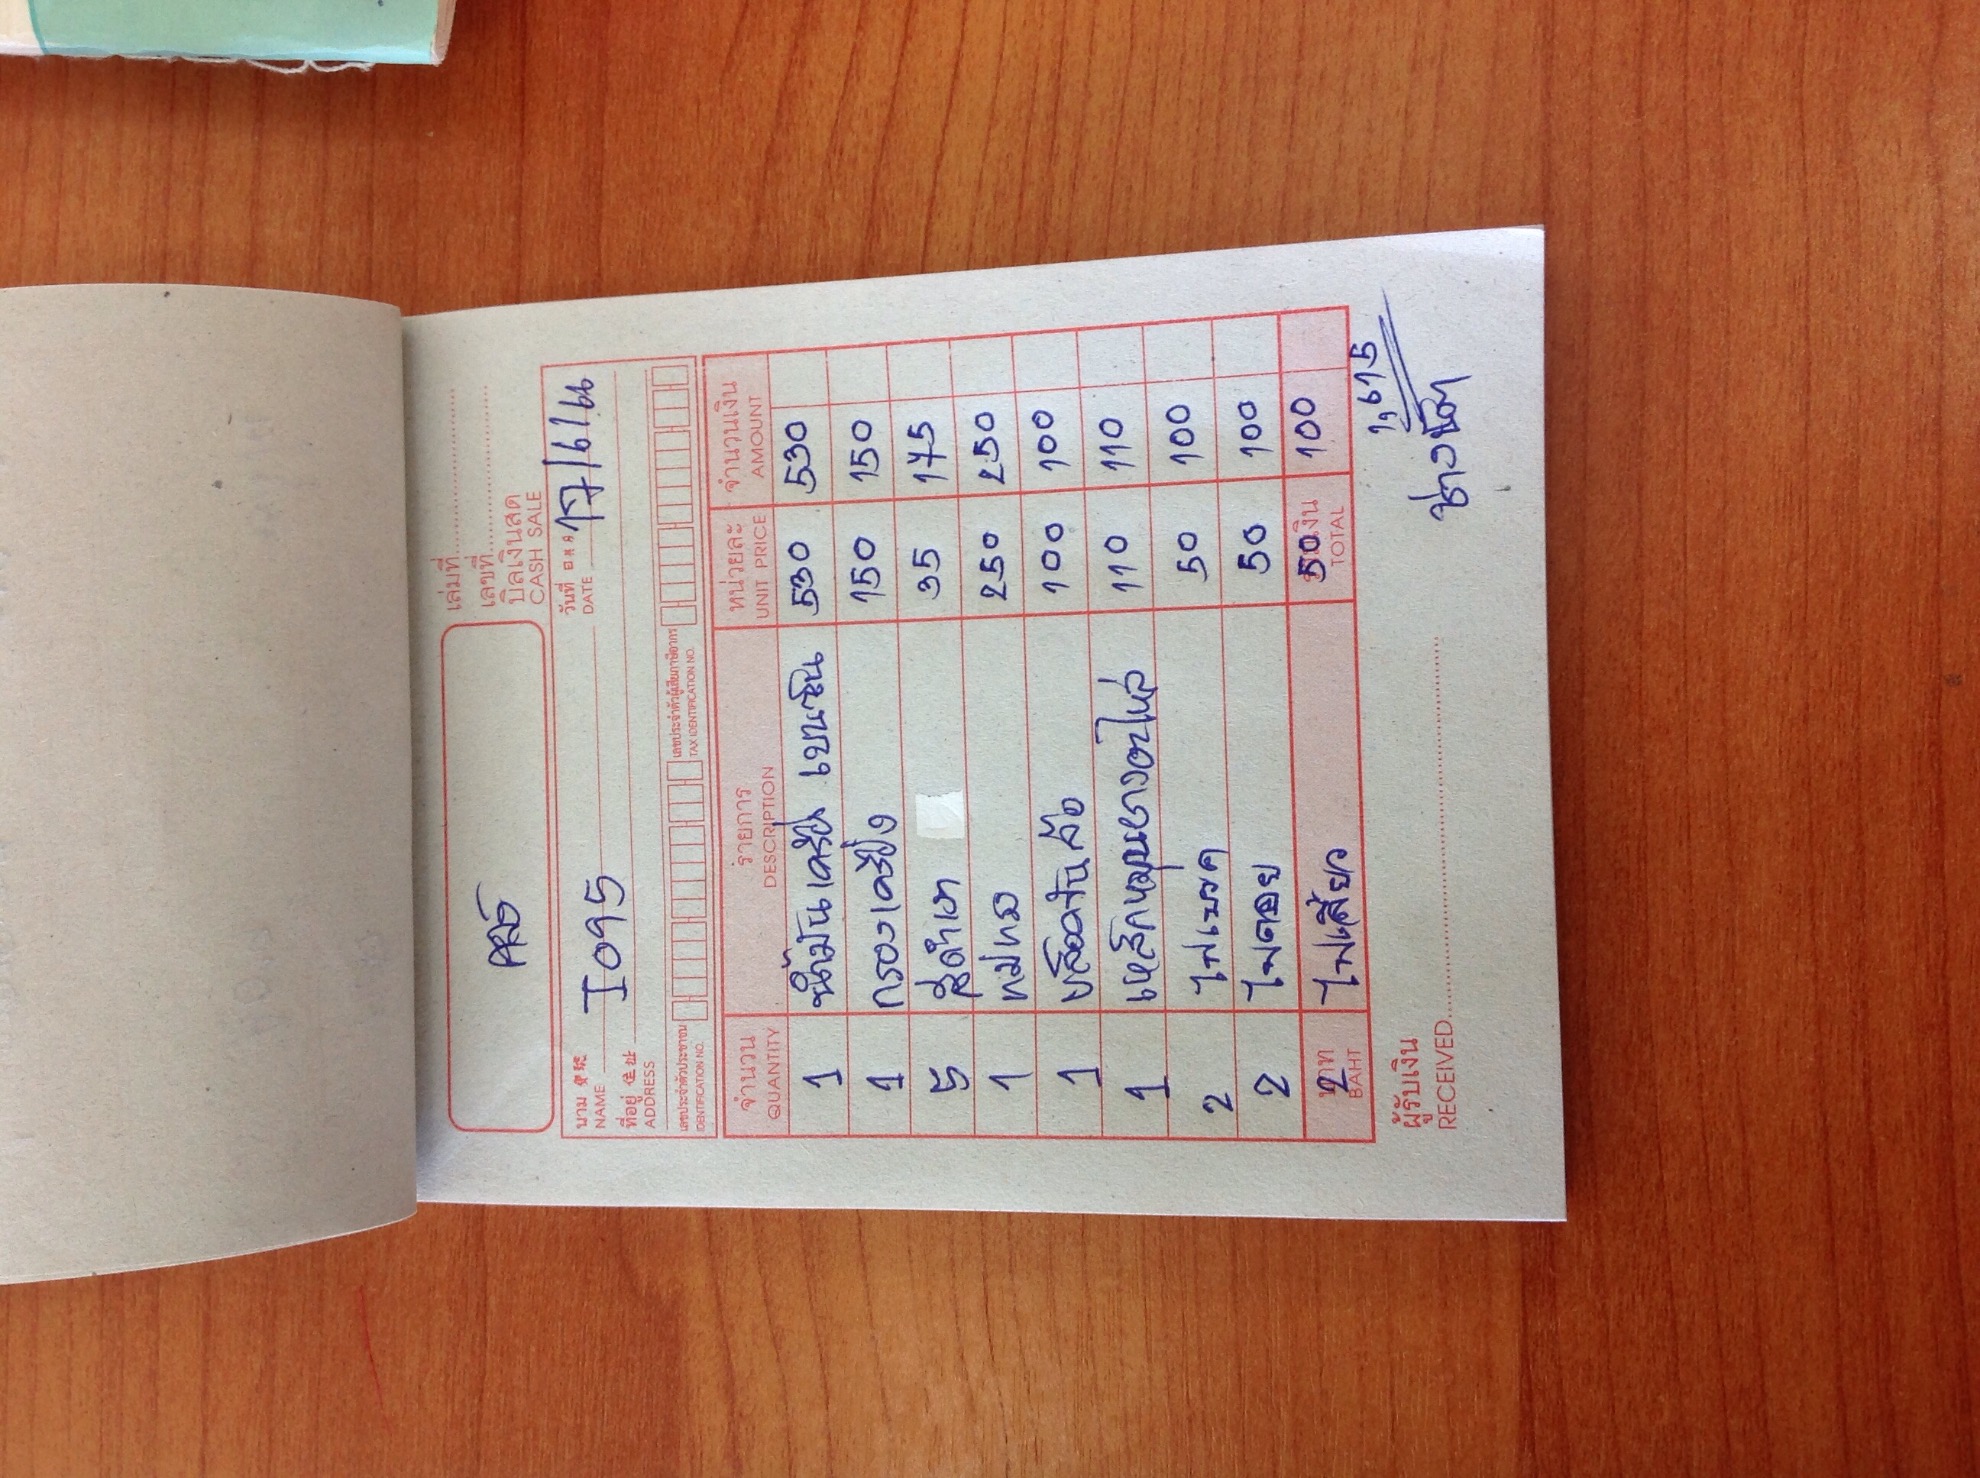 เล่มที่
เลขที่
บิลเงินสด
CASH SALE
นาม 寶號 I095 วันที่ 17/6/64
NAME DATE
ที่อยู่ 住址
ADDRESS
เลขประจำตัวประชาชน เลขประจำตัวผู้เสียภาษีอากร
IDENTIFICATION NO. TAX IDENTIFICATION NO.
จำนวน รายการ หน่วยละ จำนวนเงิน
QUANTITY DESCRIPTION UNIT PRICE AMOUNT
1 น้ำมันเครื่อง เบนซิน 530 530
1 กรองเครื่อง 150 150
5 สีดำเงา 35 175
1 250 250
1 100 100
1 110 110
2 ไฟเบรค 50 100
2 ไฟถอย 50 100
2 ไฟเลี้ยว 50 100
บาท รวมเงิน
BAHT TOTAL
1,615
ผู้รับเงิน
RECEIVED